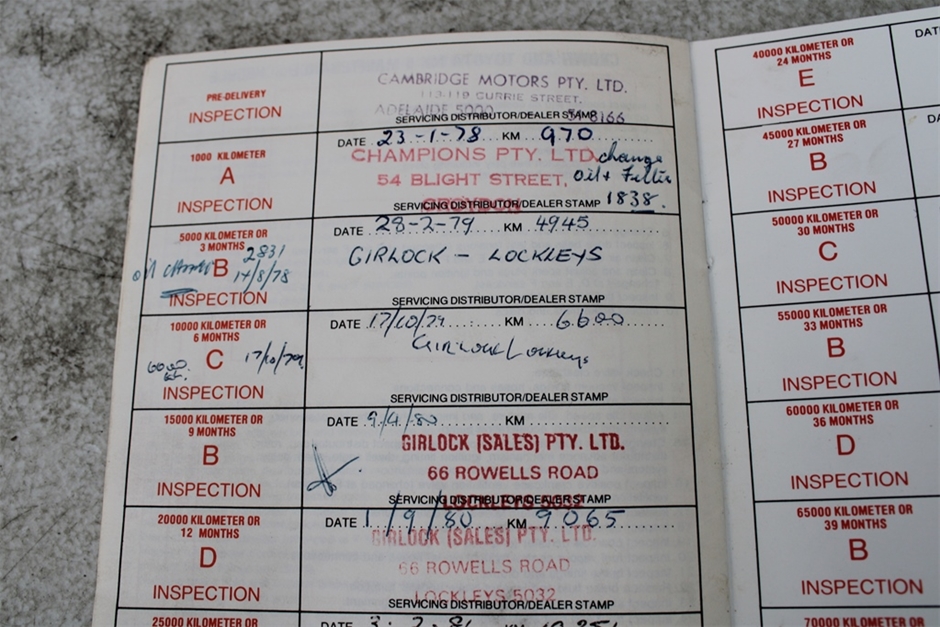 PRE-DELIVERY
INSPECTION
CAMBRIDGE MOTORS PTY. LTD.
113-119 CURRIE STREET,
ADELAIDE 5000
SERVICING DISTRIBUTOR/DEALER STAMP
1000 KILOMETER
A
INSPECTION
DATE 23-1-78 KM 970
CHAMPIONS PTY. LTD. change
54 BLIGHT STREET, Oil + Filter
SERVICING DISTRIBUTOR/DEALER STAMP 1838.
5000 KILOMETER OR
3 MONTHS
B 2831
oil change 17/8/78
INSPECTION
DATE 28-2-79 KM 4945
GIRLOCK - LOCKLEYS
SERVICING DISTRIBUTOR/DEALER STAMP
10000 KILOMETER OR
6 MONTHS
C 17/10/79
INSPECTION
DATE 17/10/79 KM 6600
Girlock Lockleys
SERVICING DISTRIBUTOR/DEALER STAMP
15000 KILOMETER OR
9 MONTHS
B
INSPECTION
DATE 9/4/80 KM
GIRLOCK (SALES) PTY. LTD.
66 ROWELLS ROAD
LOCKLEYS 5032
SERVICING DISTRIBUTOR/DEALER STAMP
20000 KILOMETER OR
12 MONTHS
D
INSPECTION
DATE 1/9/80 KM 9065
GIRLOCK (SALES) PTY. LTD.
66 ROWELLS ROAD
LOCKLEYS 5032
SERVICING DISTRIBUTOR/DEALER STAMP
25000 KILOMETER OR
DATE 3-2-81 KM
40000 KILOMETER OR
24 MONTHS
E
INSPECTION
45000 KILOMETER OR
27 MONTHS
B
INSPECTION
50000 KILOMETER OR
30 MONTHS
C
INSPECTION
55000 KILOMETER OR
33 MONTHS
B
INSPECTION
60000 KILOMETER OR
36 MONTHS
D
INSPECTION
65000 KILOMETER OR
39 MONTHS
B
INSPECTION
70000 KILOMETER OR